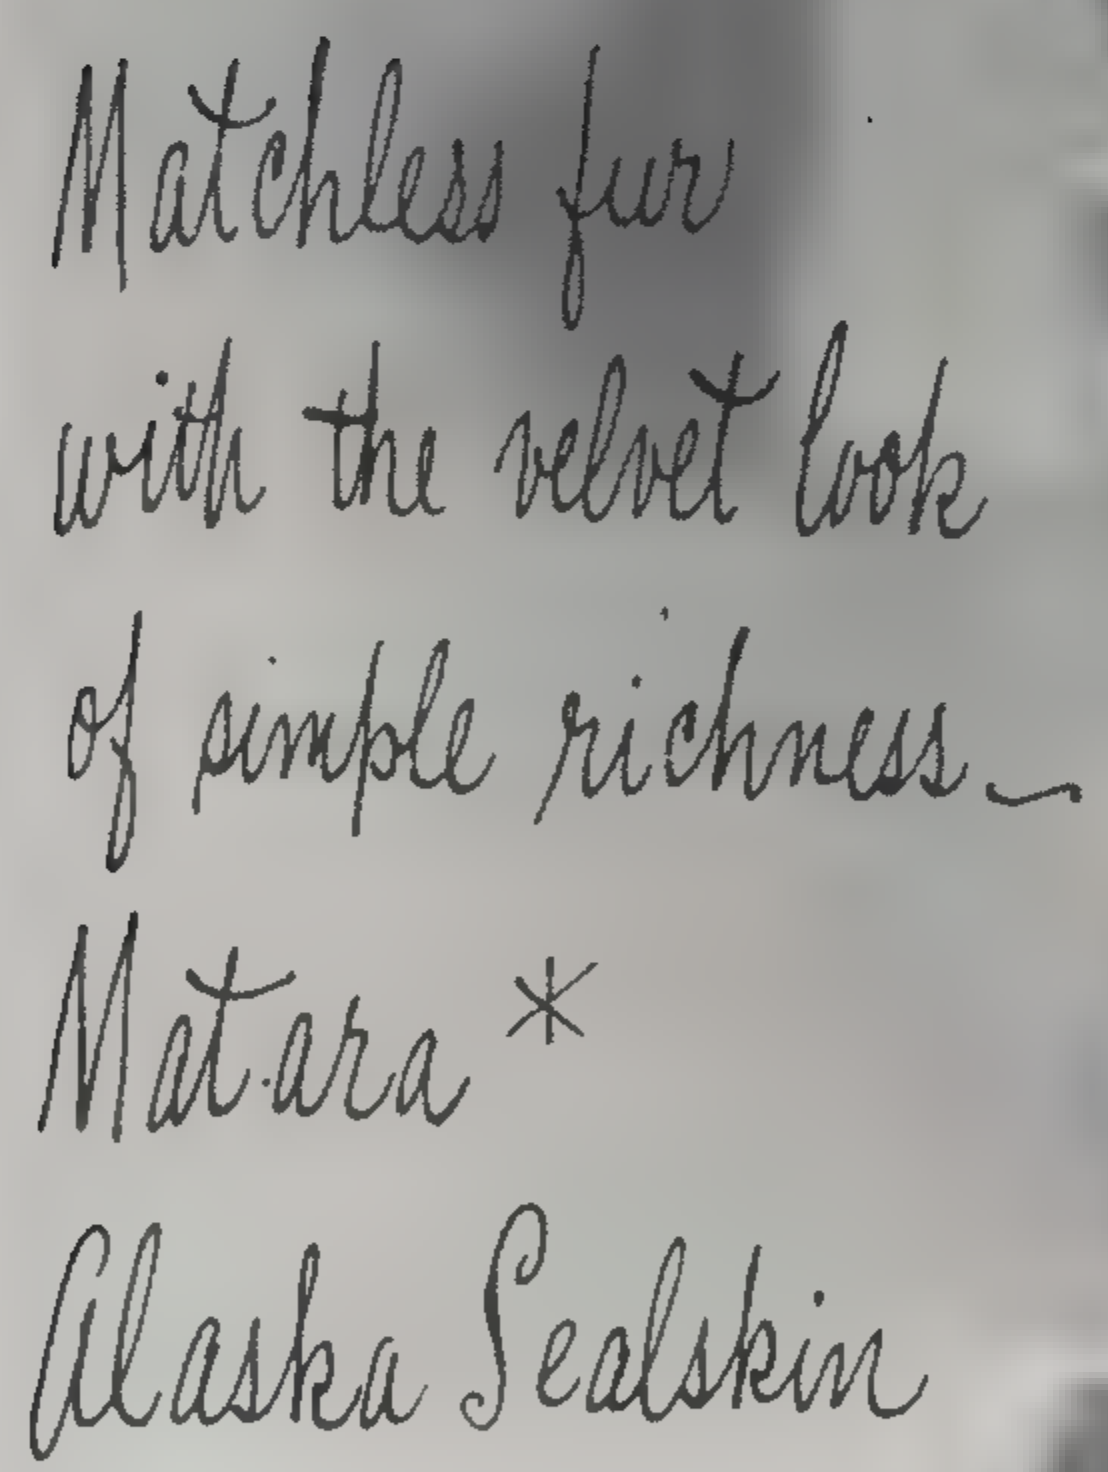 Matchless fur
with the velvet look
of simple richness—
Mat.ara*
Alaska Sealskin